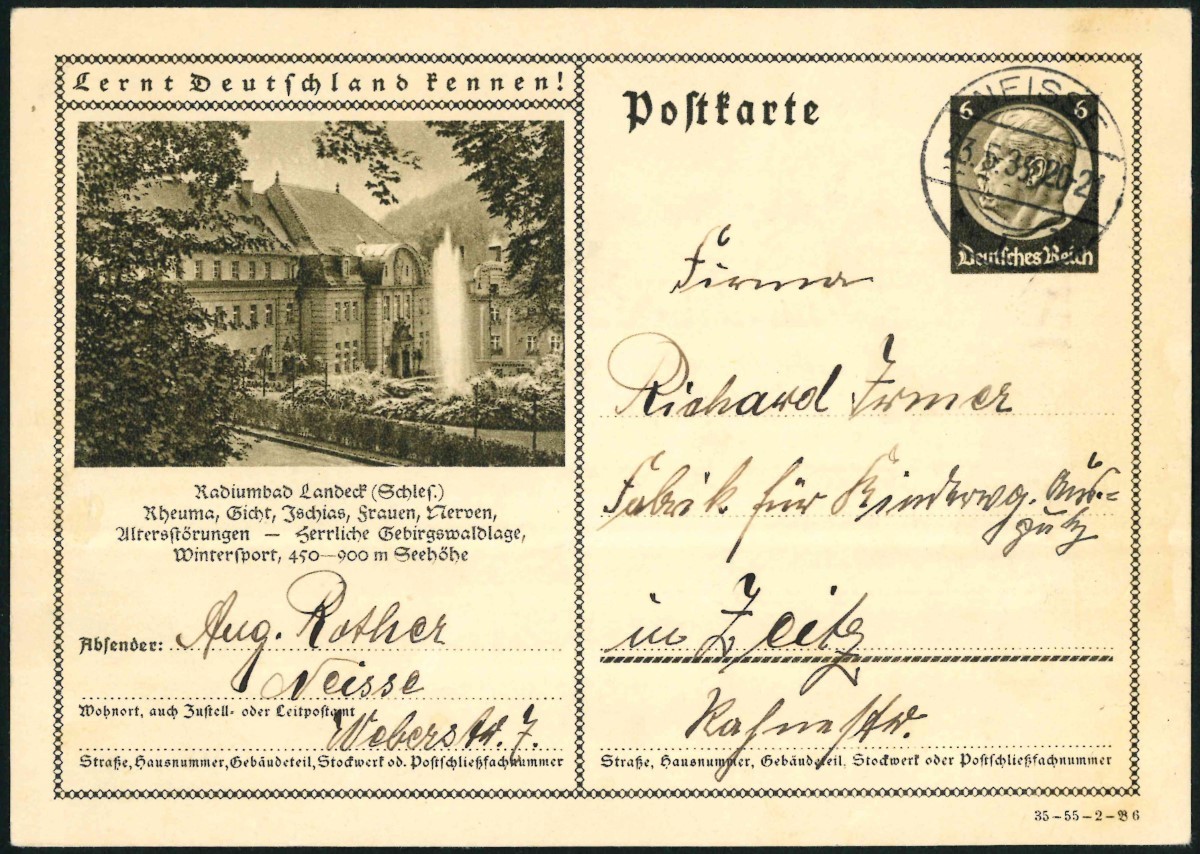 Lernt Deutschland kennen!
Radiumbad Landeck (Schles.)
Rheuma, Gicht, Ischias, Frauen, Nerven,
Altersstörungen — Herrliche Gebirgswaldlage,
Wintersport, 450—900 m Seehöhe
Absender: Aug. Rother
Neisse
Wohnort, auch Zustell- oder Leitpostamt
Weberstr. 7.
Straße, Hausnummer, Gebäudeteil, Stockwerk od. Postschließfachnummer
Postkarte
NEISSE
6 6
23.5.35.20-21
Deutsches Reich
Firma
Richard Irmer
Fabrik für Kinderwg. Aus-
putz
in Zeitz
Straße, Hausnummer, Gebäudeteil, Stockwerk oder Postschließfachnummer
35-55-2-B6